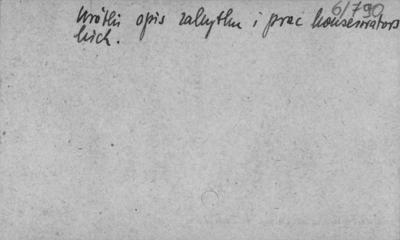 6/790
Krótki opis zabytku i prac konserwators
kich.